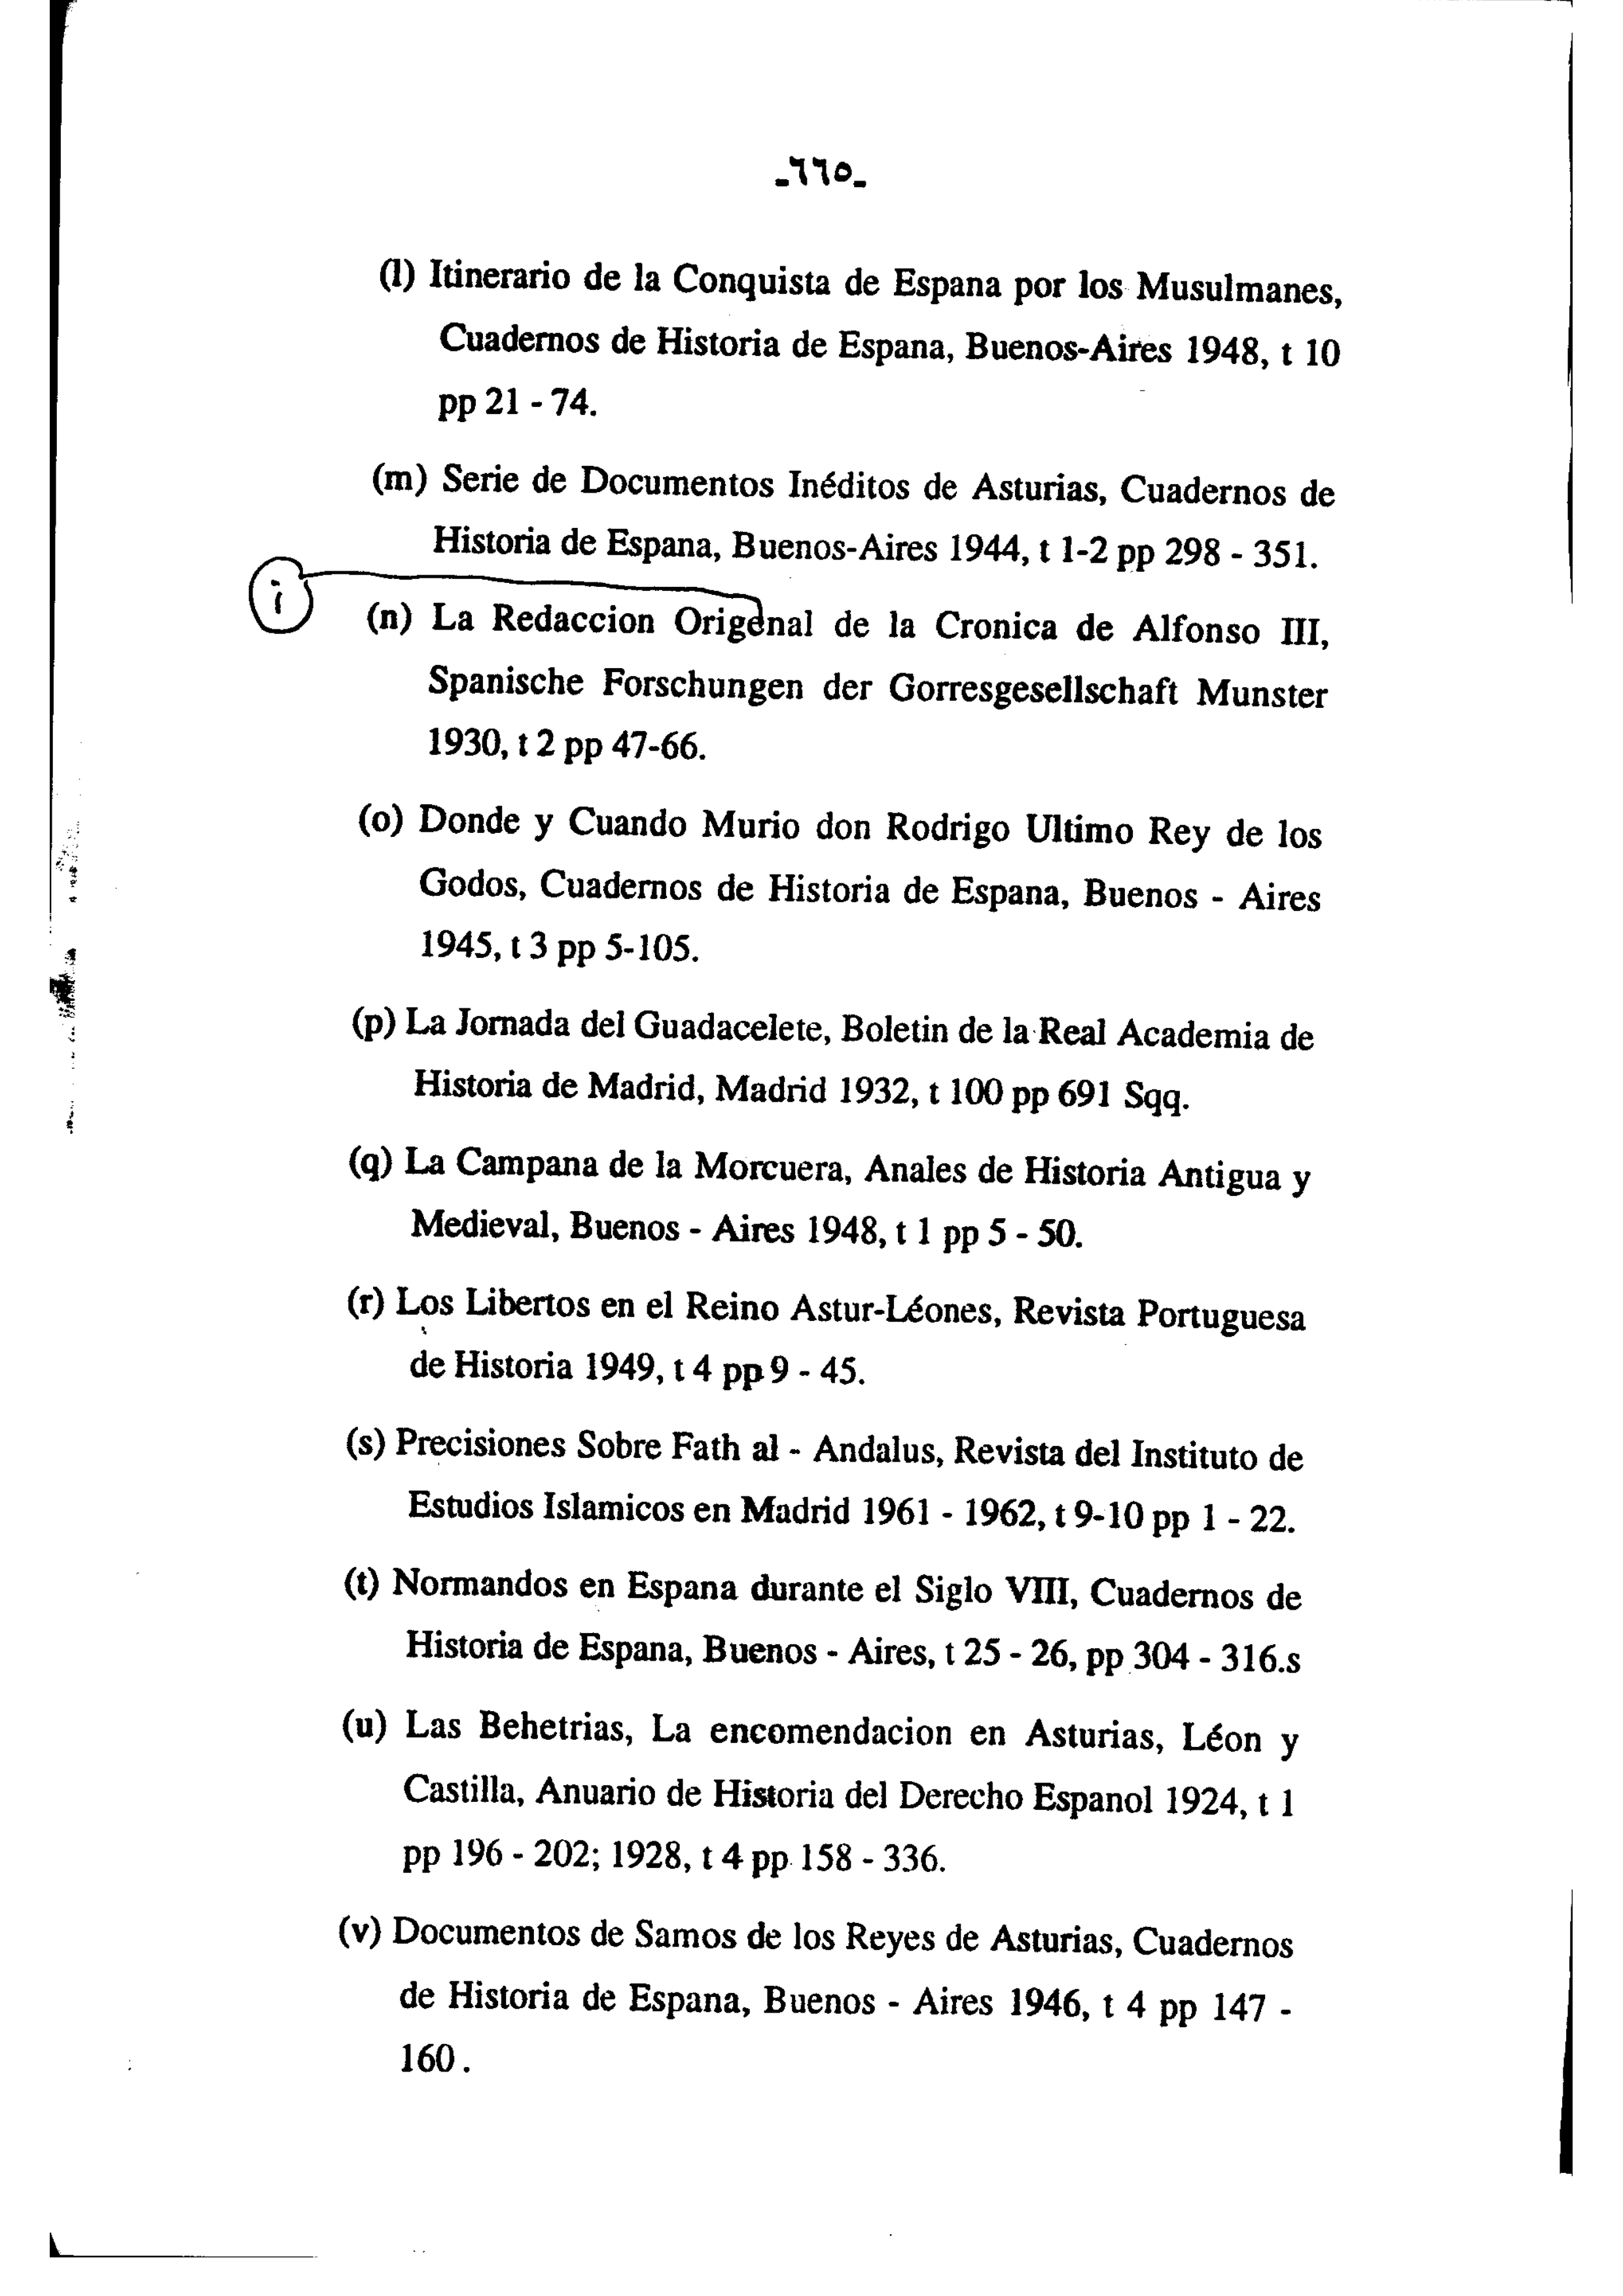 -٦٦٥-
(l) Itinerario de la Conquista de Espana por los Musulmanes,
Cuadernos de Historia de Espana, Buenos-Aires 1948, t 10
pp 21 - 74.
(m) Serie de Documentos Inéditos de Asturias, Cuadernos de
Historia de Espana, Buenos-Aires 1944, t 1-2 pp 298 - 351.
i
(n) La Redaccion Origenal de la Cronica de Alfonso III,
Spanische Forschungen der Gorresgesellschaft Munster
1930, t 2 pp 47-66.
(o) Donde y Cuando Murio don Rodrigo Ultimo Rey de los
Godos, Cuadernos de Historia de Espana, Buenos - Aires
1945, t 3 pp 5-105.
(p) La Jornada del Guadacelete, Boletin de la Real Academia de
Historia de Madrid, Madrid 1932, t 100 pp 691 Sqq.
(q) La Campana de la Morcuera, Anales de Historia Antigua y
Medieval, Buenos - Aires 1948, t 1 pp 5 - 50.
(r) Los Libertos en el Reino Astur-Léones, Revista Portuguesa
de Historia 1949, t 4 pp 9 - 45.
(s) Precisiones Sobre Fath al - Andalus, Revista del Instituto de
Estudios Islamicos en Madrid 1961 - 1962, t 9-10 pp 1 - 22.
(t) Normandos en Espana durante el Siglo VIII, Cuadernos de
Historia de Espana, Buenos - Aires, t 25 - 26, pp 304 - 316.s
(u) Las Behetrias, La encomendacion en Asturias, Léon y
Castilla, Anuario de Historia del Derecho Espanol 1924, t 1
pp 196 - 202; 1928, t 4 pp 158 - 336.
(v) Documentos de Samos de los Reyes de Asturias, Cuadernos
de Historia de Espana, Buenos - Aires 1946, t 4 pp 147 -
160 .